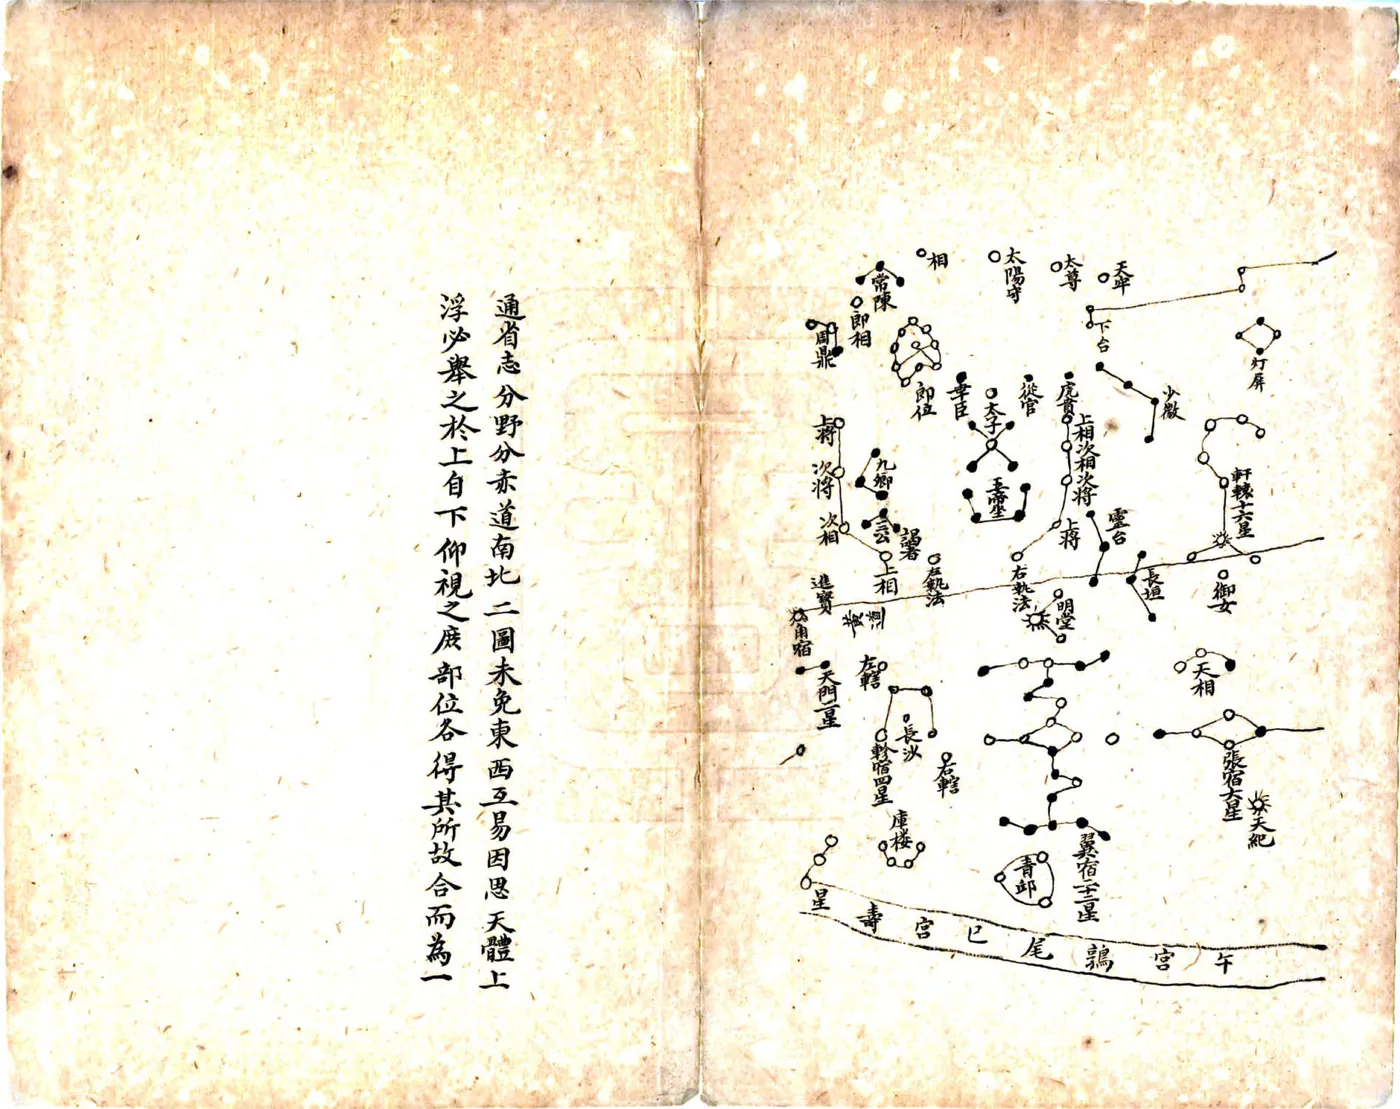 相
太陽守
太尊
天牢
常陳
郎相
周鼎
下台
灯屏
郎位
幸臣
太子
從官
虎賁
少微
上將
次將
次相
上相
九卿
三公
謁者
五帝坐
上相次相次將
上將
靈台
軒轅十六星
左執法
右執法
長垣
御女
進賢
黃道
明堂
角宿
天門二星
左轄
長沙
軫宿四星
右轄
天相
張宿六星
天紀
庫楼
青邱
翼宿二十二星
午宮鶉尾巳宮壽星
通省志分野分赤道南北二圖未免東西互易因思天體上
浮必舉之於上自下仰視之庶部位各得其所故合而為一